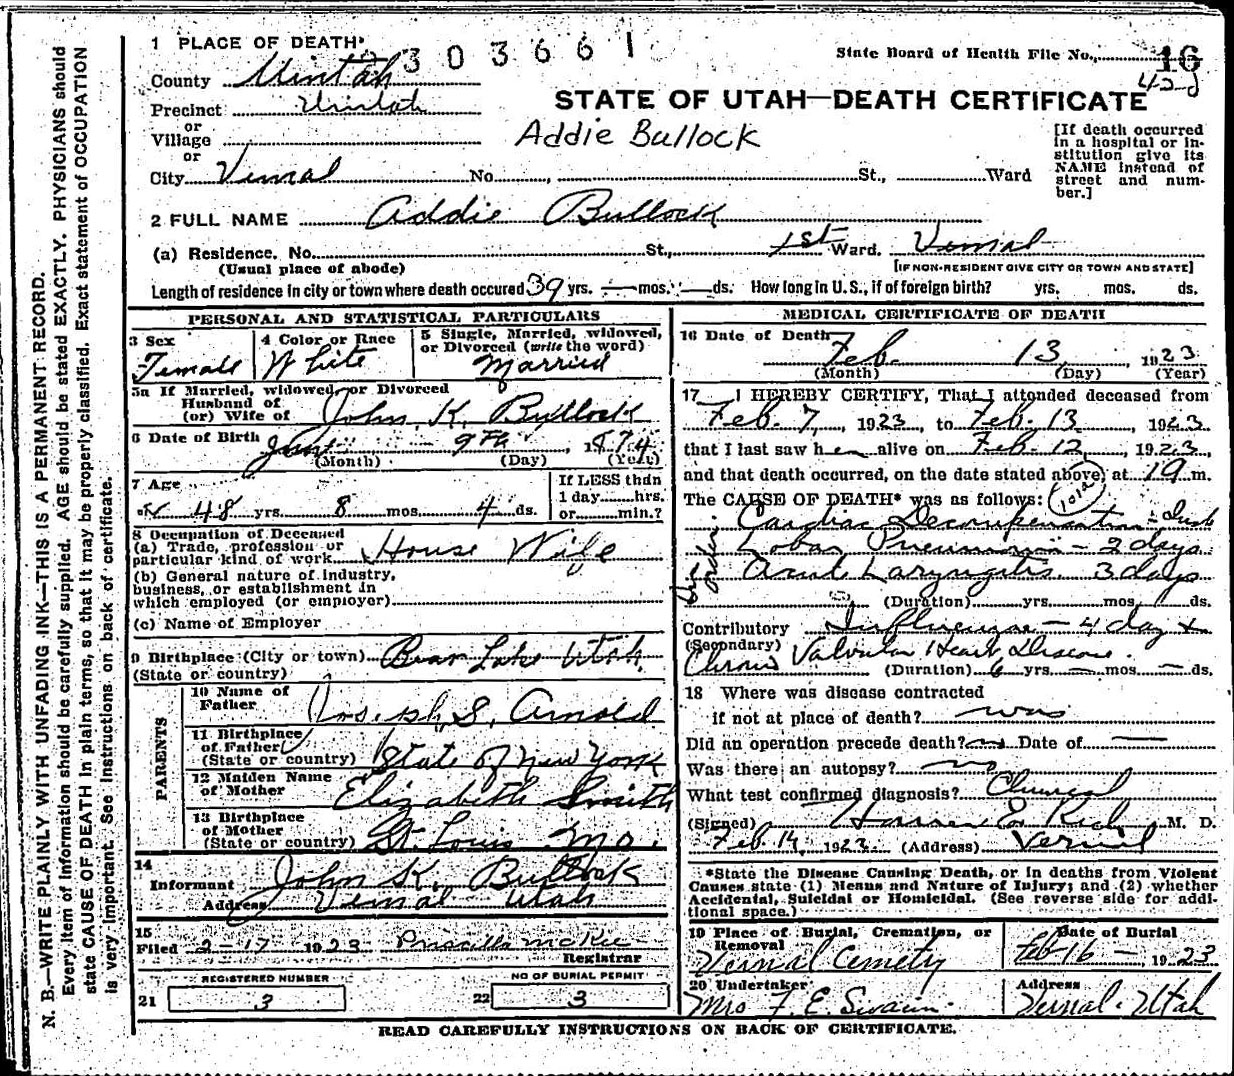 1 PLACE OF DEATH*
303661
State Board of Health File No. 16
County Uintah
42 d
Precinct Uintah
STATE OF UTAH—DEATH CERTIFICATE
or
Village
Addie Bullock
or
City Vernal No. , St., Ward
[If death occurred in a hospital or in-
stitution give its
NAME instead of
street and num-
ber.]
2 FULL NAME Addie Bullock
(a) Residence. No. St., 1st Ward. Vernal
(Usual place of abode)
[IF NON-RESIDENT GIVE CITY OR TOWN AND STATE]
Length of residence in city or town where death occured 39 yrs. — mos. — ds. How long in U.S., if of foreign birth? yrs. mos. ds.
PERSONAL AND STATISTICAL PARTICULARS
3 Sex
Female
4 Color or Race
White
5 Single, Married, widowed,
or Divorced (write the word)
Married
5a If Married, widowed, or Divorced
Husband of
(or) Wife of John K. Bullock
6 Date of Birth 9th, 1874
(Month) (Day) (Year)
7 Age
48 yrs. 8 mos. 4 ds.
If LESS than
1 day hrs.
or min.?
8 Occupation of Deceased
(a) Trade, profession or
particular kind of work House Wife
(b) General nature of industry,
business, or establishment in
which employed (or employer)
(c) Name of Employer
9 Birthplace (City or town) Bear Lake Utah
(State or country)
PARENTS
10 Name of
Father Joseph S. Arnold
11 Birthplace
of Father
(State or country) State of New York
12 Maiden Name
of Mother Elizabeth Smith
13 Birthplace
of Mother
(State or country) St. Louis Mo.
14
Informant John K. Bullock
Address Vernal Utah
15
Filed 2-17 1923 Priscilla McKee
Registrar
REGISTERED NUMBER
21 3
NO OF BURIAL PERMIT
22 3
MEDICAL CERTIFICATE OF DEATH
16 Date of Death
Feb. 13, 1923
(Month) (Day) (Year)
17 I HEREBY CERTIFY, That I attended deceased from
Feb. 7, 1923 to Feb. 13, 1923
that I last saw her alive on Feb. 12, 1923,
and that death occurred, on the date stated above, at m.
The CAUSE OF DEATH* was as follows:
101a
Cardiac Decompensation
Lobar Pneumonia — 2 days
Acute Laryngitis. 3 days
(Duration) yrs. mos. ds.
Contributory Influenza — 4 day &
(Secondary)
Chronic Valvular Heart Disease.
(Duration) 6 yrs. — mos. — ds.
18 Where was disease contracted
if not at place of death? was
Did an operation precede death? no Date of —
Was there an autopsy? no
What test confirmed diagnosis? Clinical
(Signed) Homer E. Rich M. D.
Feb. 14, 1923. (Address) Vernal
*State the Disease Causing Death, or in deaths from Violent
Causes state (1) Means and Nature of Injury; and (2) whether
Accidental, Suicidal or Homicidal. (See reverse side for addi-
tional space.)
19 Place of Burial, Cremation, or
Removal
Vernal Cemetry
Date of Burial
Feb-16 — 1923
20 Undertaker
Mrs F. E. Swain.
Address
Vernal. Utah
READ CAREFULLY INSTRUCTIONS ON BACK OF CERTIFICATE.
N. B.—WRITE PLAINLY WITH UNFADING INK—THIS IS A PERMANENT RECORD.
Every item of information should be carefully supplied. AGE should be stated EXACTLY. PHYSICIANS should
state CAUSE OF DEATH in plain terms, so that it may be properly classified. Exact statement of OCCUPATION
is very important. See instructions on back of certificate.